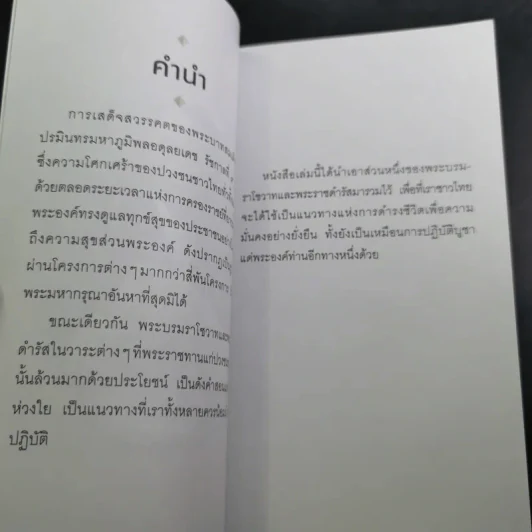 คำนำ
การเสด็จสวรรคตของพระบาทสมเด็
ปรมินทรมหาภูมิพลอดุลยเดช รัชกาลที่
ซึ่งความโศกเศร้าของปวงชนชาวไทยทั่ว
ด้วยตลอดระยะเวลาแห่งการครองราชย์
พระองค์ทรงดูแลทุกข์สุขของประชาชน
ถึงความสุขส่วนพระองค์ ดังปรากฏ
ผ่านโครงการต่างๆ มากกว่าสี่พันโครงการ
พระมหากรุณาอันหาที่สุดมิได้
ขณะเดียวกัน พระบรมราโชวาทและ
ดำรัสในวาระต่างๆ ที่พระราชทานแก่ปวง
นั้นล้วนมากด้วยประโยชน์ เป็นดังคำสอน
ห่วงใย เป็นแนวทางที่เราทั้งหลายควร
ปฏิบัติ
หนังสือเล่มนี้ได้นำเอาส่วนหนึ่งของพระบรม-
ราโชวาทและพระราชดำรัสมารวมไว้ เพื่อที่เราชาวไทย
จะได้ใช้เป็นแนวทางแห่งการดำรงชีวิตเพื่อความ
มั่นคงอย่างยั่งยืน ทั้งยังเป็นเหมือนการปฏิบัติบูชา
แด่พระองค์ท่านอีกทางหนึ่งด้วย